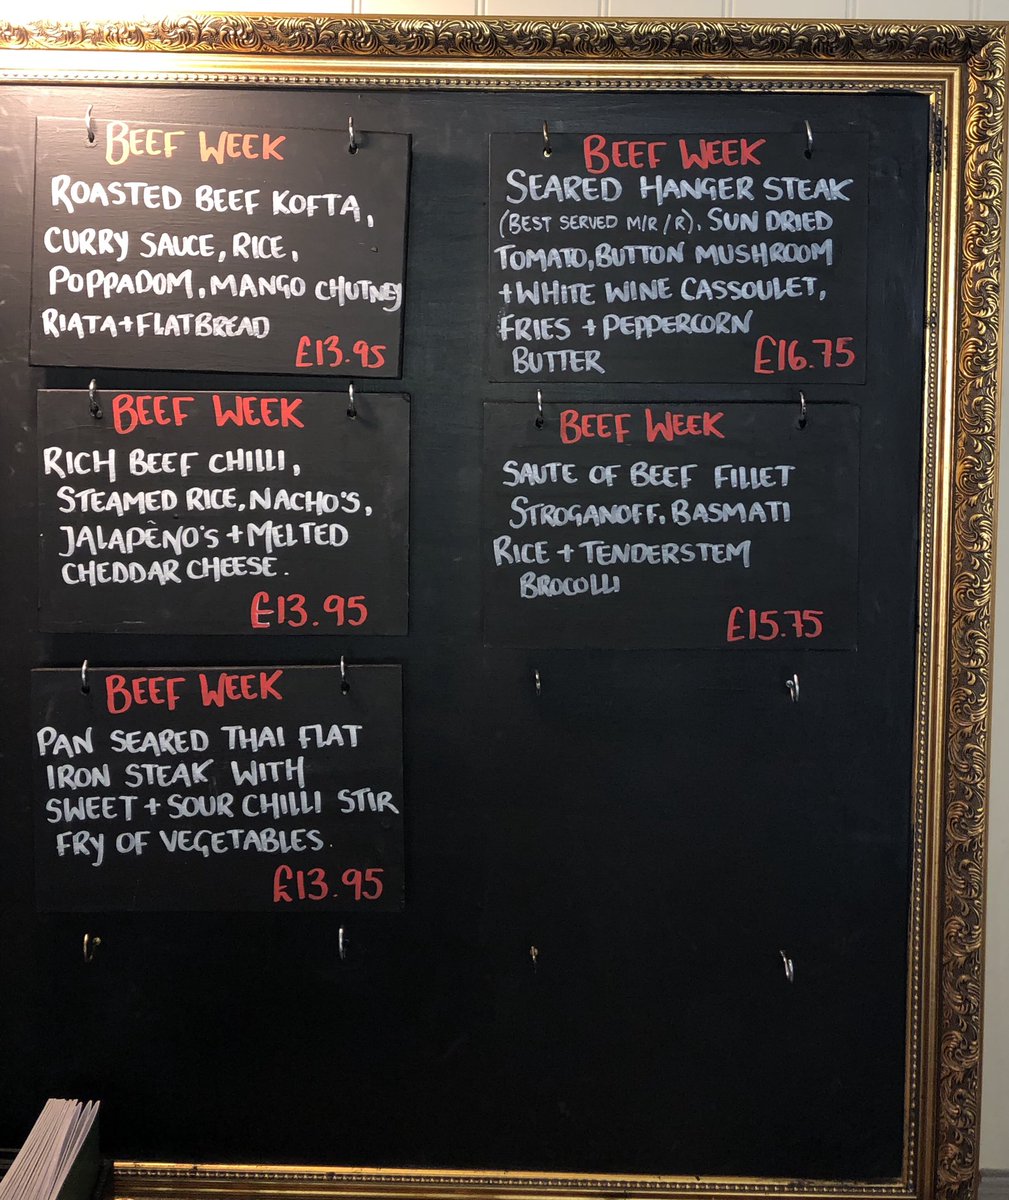 BEEF WEEK
ROASTED BEEF KOFTA,
CURRY SAUCE, RICE,
POPPADOM, MANGO CHUTNEY
RIATA + FLATBREAD
£13.95
BEEF WEEK
RICH BEEF CHILLI,
STEAMED RICE, NACHO'S,
JALAPĖNO'S + MELTED
CHEDDAR CHEESE.
£13.95
BEEF WEEK
PAN SEARED THAI FLAT
IRON STEAK WITH
SWEET + SOUR CHILLI STIR
FRY OF VEGETABLES.
£13.95
BEEF WEEK
SEARED HANGER STEAK
(BEST SERVED M/R/R), SUN DRIED
TOMATO, BUTTON MUSHROOM
+ WHITE WINE CASSOULET,
FRIES + PEPPERCORN
BUTTER
£16.75
BEEF WEEK
SAUTE OF BEEF FILLET
STROGANOFF, BASMATI
RICE + TENDERSTEM
BROCOLLI
£15.75